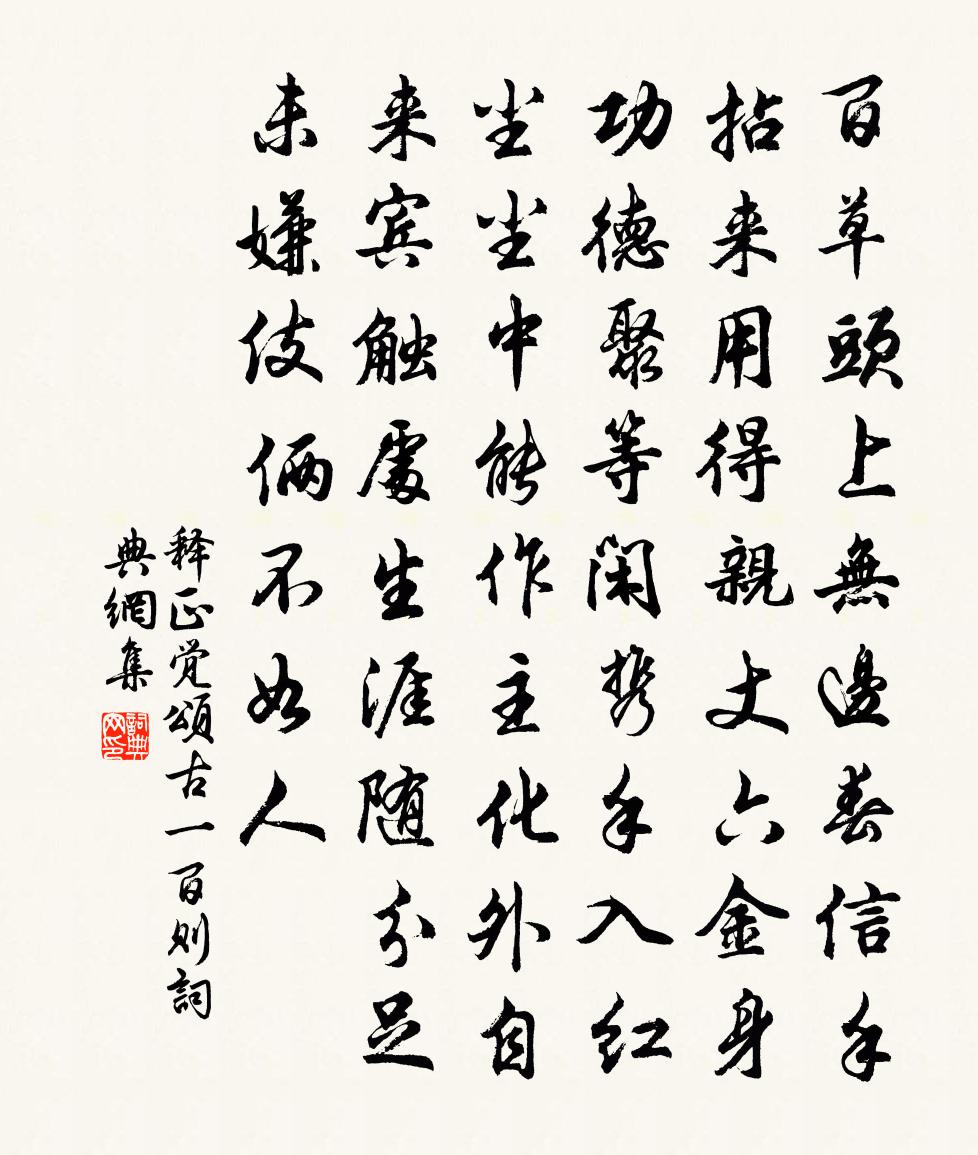 百草頭上無邊春信手
拈来用得親丈六金身
功德聚等闲携手入红
尘尘中能作主化外自
来宾触處生涯随分足
未嫌伎倆不如人
释正觉頌古一百则詞
典網集
詞典
网印